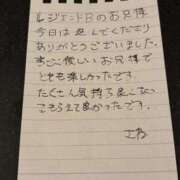 レジェンドBのお兄様
今日は遊んでくださり
ありがとうございました。
すっごく優しいお兄様で
とても楽しかったです
たくさん気持ち良くなって
もらえて良かったです。